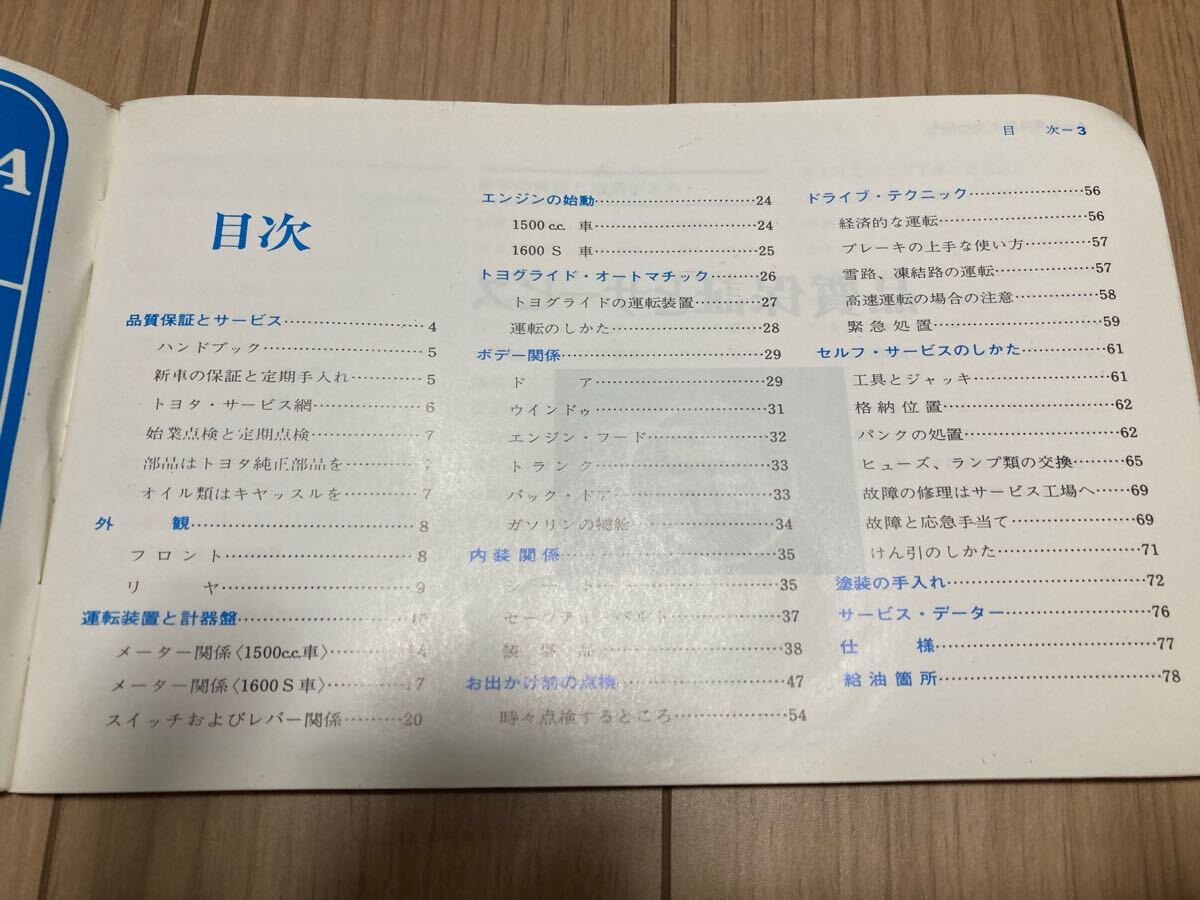 A
目 次－3
目次
品質保証とサービス……………4
ハンドブック……………5
新車の保証と定期手入れ……………5
トヨタ・サービス網……………6
始業点検と定期点検……………7
部品はトヨタ純正部品を……………7
オイル類はキヤッスルを……………7
外 観……………8
フロント……………8
リ ヤ……………9
運転装置と計器盤……………
メーター関係〈1500c.c.車〉……………14
メーター関係〈1600 S 車〉……………17
スイッチおよびレバー関係……………20
エンジンの始動……………24
1500 c.c. 車……………24
1600 S 車……………25
トヨグライド・オートマチック……………26
トヨグライドの運転装置……………27
運転のしかた……………28
ボデー関係……………29
ド ア……………29
ウインドゥ……………31
エンジン・フード……………32
トランク……………33
バック・ドア……………33
ガソリンの補給……………34
内装関係……………35
シート……………35
セーフティ・ベルト……………37
装備品……………38
お出かけ前の点検……………47
時々点検するところ……………54
ドライブ・テクニック……………56
経済的な運転……………56
ブレーキの上手な使い方……………57
雪路、凍結路の運転……………57
高速運転の場合の注意……………58
緊急処置……………59
セルフ・サービスのしかた……………61
工具とジャッキ……………61
格納位置……………62
パンクの処置……………62
ヒューズ、ランプ類の交換……………65
故障の修理はサービス工場へ……69
故障と応急手当て……………69
けん引のしかた……………71
塗装の手入れ……………72
サービス・データー……………76
仕 様……………77
給油箇所……………78